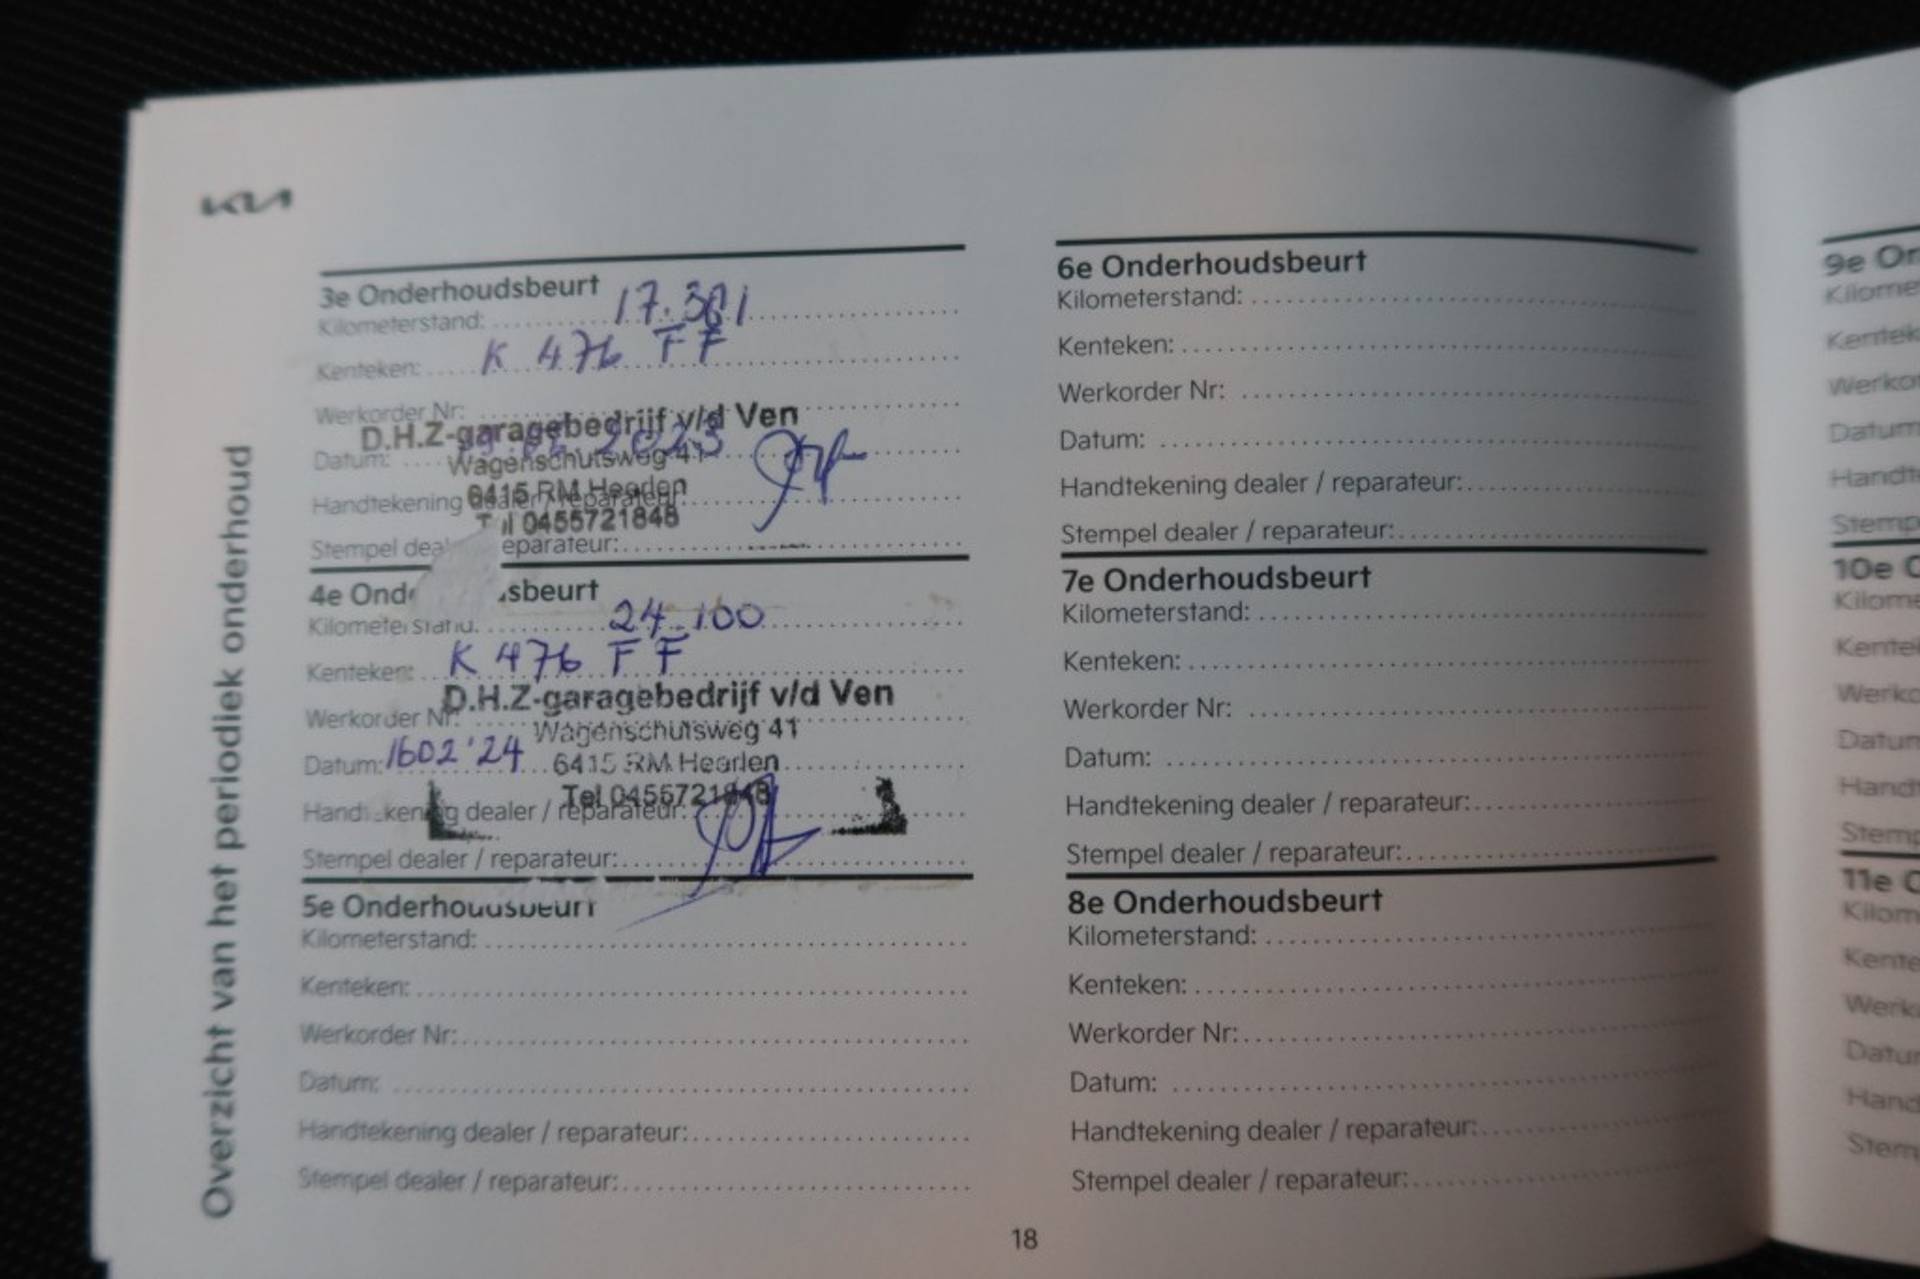 KIA
Overzicht van het periodiek onderhoud
3e Onderhoudsbeurt
Kilometerstand: 17.381
Kenteken: K 476 FF
Werkorder Nr:
D.H.Z-garagebedrijf v/d Ven
Datum: 2023
Wagenschutsweg 41
6415 RM Heerlen
Handtekening dealer / reparateur:
Tel 0455721848
Stempel dea eparateur:
4e Onde sbeurt
Kilometerstand: 24.100
Kenteken: K 476 FF
D.H.Z-garagebedrijf v/d Ven
Werkorder Nr:
Wagenschutsweg 41
Datum: 1602'24
6415 RM Heerlen
Tel 0455721848
Handtekening dealer / reparateur:
Stempel dealer / reparateur:
5e Onderhoudsbeurt
Kilometerstand:
Kenteken:
Werkorder Nr:
Datum:
Handtekening dealer / reparateur:
Stempel dealer / reparateur:
6e Onderhoudsbeurt
Kilometerstand:
Kenteken:
Werkorder Nr:
Datum:
Handtekening dealer / reparateur:
Stempel dealer / reparateur:
7e Onderhoudsbeurt
Kilometerstand:
Kenteken:
Werkorder Nr:
Datum:
Handtekening dealer / reparateur:
Stempel dealer / reparateur:
8e Onderhoudsbeurt
Kilometerstand:
Kenteken:
Werkorder Nr:
Datum:
Handtekening dealer / reparateur:
Stempel dealer / reparateur:
18
9e On
Kilome
Kentek
Werko
Datum
Handt
Stemp
10e O
Kilome
Kente
Werko
Datum
Hand
Stemp
11e O
Kilom
Kente
Werk
Datu
Hand
Stem